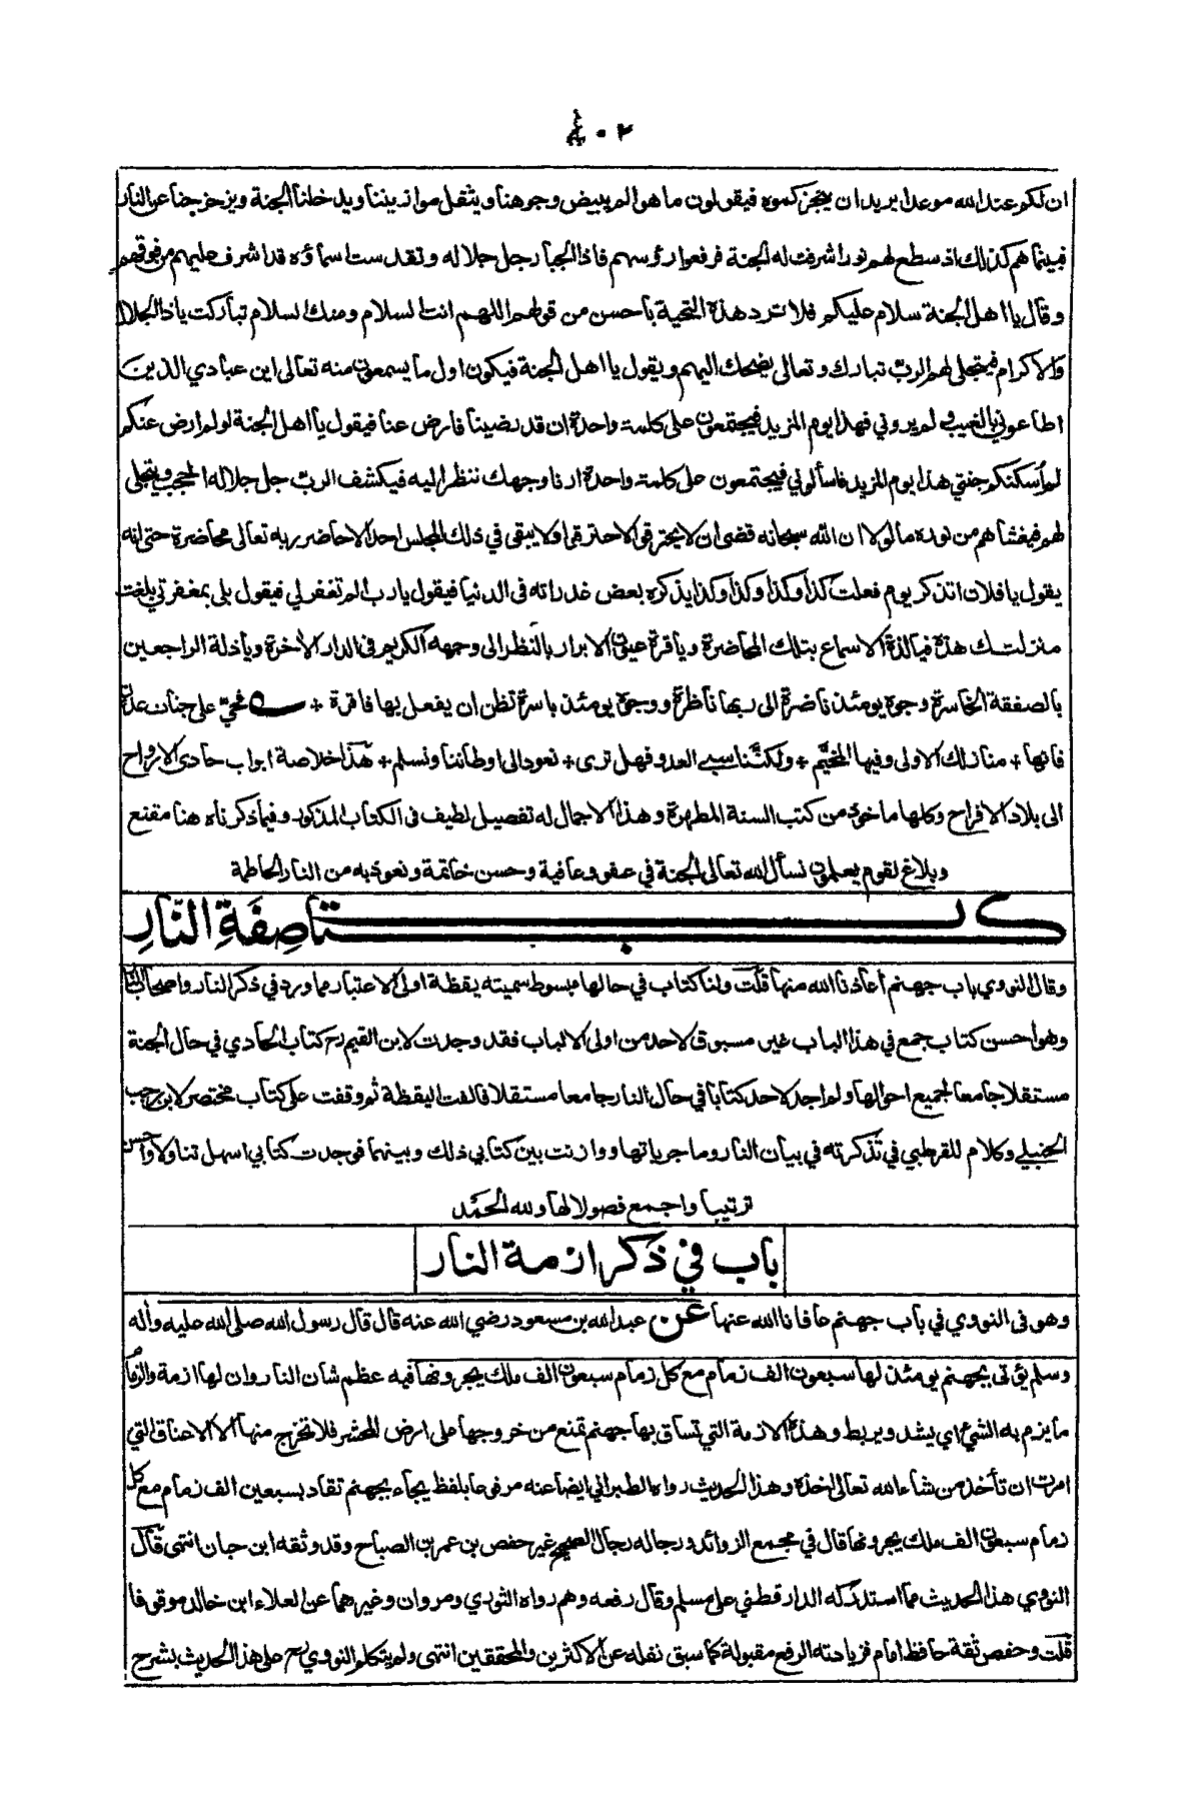 ٤٠٢
ان لكم عند الله موعدا يريد ان ينجزكموه فيقولون ما هو الم يبيض وجوهنا ويثقل موازيننا ويدخلنا الجنة ويزحزحنا عن النار
فبينما هم كذلك اذ سطع لهم نور اشرقت له الجنة فرفعوا رؤسهم فاذا الجبار جل جلاله وتقدست اسماؤه قد اشرف عليهم من فوقهم
وقال يا اهل الجنة سلام عليكم فلا ترد هذه التحية باحسن من قولهم اللهم انت السلام ومنك السلام تباركت يا ذا الجلال
والاكرام فيتجلى لهم الرب تبارك وتعالى يضحك اليهم ويقول يا اهل الجنة فيكون اول ما يسمعون منه تعالى اين عبادي الذين
اطاعوني بالغيب ولم يروني فهذا يوم المزيد فيجتمعون على كلمة واحدة ان قد رضينا فارض عنا فيقول يا اهل الجنة لو لم ارض عنكم
لم اسكنكم جنتي هذا يوم المزيد فاسألوني فيجتمعون على كلمة واحدة ارنا وجهك ننظر اليه فيكشف الرب جل جلاله الحجب ويتجلى
لهم فيغشاهم من نوره ما لولا ان الله سبحانه قضى ان لا يحترقوا لاحترقوا ولا يبقى في ذلك المجلس احد الا حاضر ربه تعالى محاضرة حتى انه
يقول يا فلان اتذكر يوم فعلت كذا وكذا وكذا وكذا يذكره بعض غدراته فى الدنيا فيقول يا رب الم تغفر لي فيقول بلى بمغفرتي بلغت
منزلتك هذه فيا لذة الاسماع بتلك المحاضرة ويا قرة عيون الابرار بالنظر الى وجهه الكريم فى الدار الآخرة ويا ذلة الراجعين
بالصفقة الخاسرة وجوه يومئذ ناضرة الى ربها ناظرة ووجوه يومئذ باسرة تظن ان يفعل بها فاقرة + فحيّ على جنات عدن
فانها + منازلك الاولى وفيها المخيَّم + ولكنَّنا سبي العدو فهل ترى + نعود الى اوطاننا ونسلم + هذا خلاصة ابواب حادى الارواح
الى بلاد الافراح وكلها ماخوذ من كتب السنة المطهرة وهذا الاجمال له تفصيل لطيف فى الكتاب المذكور وفيما ذكرناه هنا مقنع
وبلاغ لقوم يعلمون نسأل الله تعالى الجنة في عفو وعافية وحسن خاتمة ونعوذ به من النار الحاطمة
كتاب صِفَةِ النّارِ
وقال النووي باب جهنم أعاذنا الله منها قلت ولنا كتاب في حالها مبسوط سميته يقظة اولى الاعتبار مما ورد في ذكر النار واصحاب النار
وهو احسن كتاب جمع في هذا الباب غير مسبوق لاحد من اولى الالباب فقد وجدت لابن القيم رح كتاب الحادي في حال الجنة
مستقلا جامعا لجميع احوالها ولم اجد لاحد كتابا في حال النار جامعا مستقلا فالفت اليقظة ثم وقفت على كتاب مختصر لابن رجب
الحنبلي وكلام للقرطبي في تذكرته في بيان النار وماجرياتها ووازنت بين كتابي ذلك وبينهما فوجدت كتابي اسهل تناولا واحسن
ترتيبا واجمع فصولا لها ولله الحمد
باب في ذكر ازمة النار
وهو فى النووي في باب جهنم عافانا الله عنها عن عبدالله بن مسعود رضي الله عنه قال قال رسول الله صلى الله عليه وآله
وسلم يؤتى بجهنم يومئذ لها سبعون الف زمام مع كل زمام سبعون الف ملك يجرونها فيه عظم شان النار وان لها ازمة والزمام
ما يزم به الشيء اي يشد ويربط وهذه الازمة التي تساق بها جهنم تمنع من خروجها على ارض المحشر فلا تخرج منها الا الاعناق التي
امرت ان تأخذ من شاء الله تعالى اخذه وهذا الحديث رواه الطبراني ايضا عنه مرفوعا بلفظ يجاء بجهنم تقاد بسبعين الف زمام مع كل
زمام سبعون الف ملك يجرونها قال في مجمع الزوائد ورجاله رجال الصحيح غير حفص بن عمر بن الصباح وقد وثقه ابن حبان انتهى قال
النووي هذا الحديث مما استدركه الدارقطني على مسلم وقال رفعه وهم رواه الثوري ومروان وغيرهما عن العلاء ابن خالد موقوفا
قلت وحفص ثقة حافظ امام فزيادته الرفع مقبولة كما سبق نقله عن الاكثرين والمحققين انتهى ولم يتكلم النووي رح على هذا الحديث بشرح